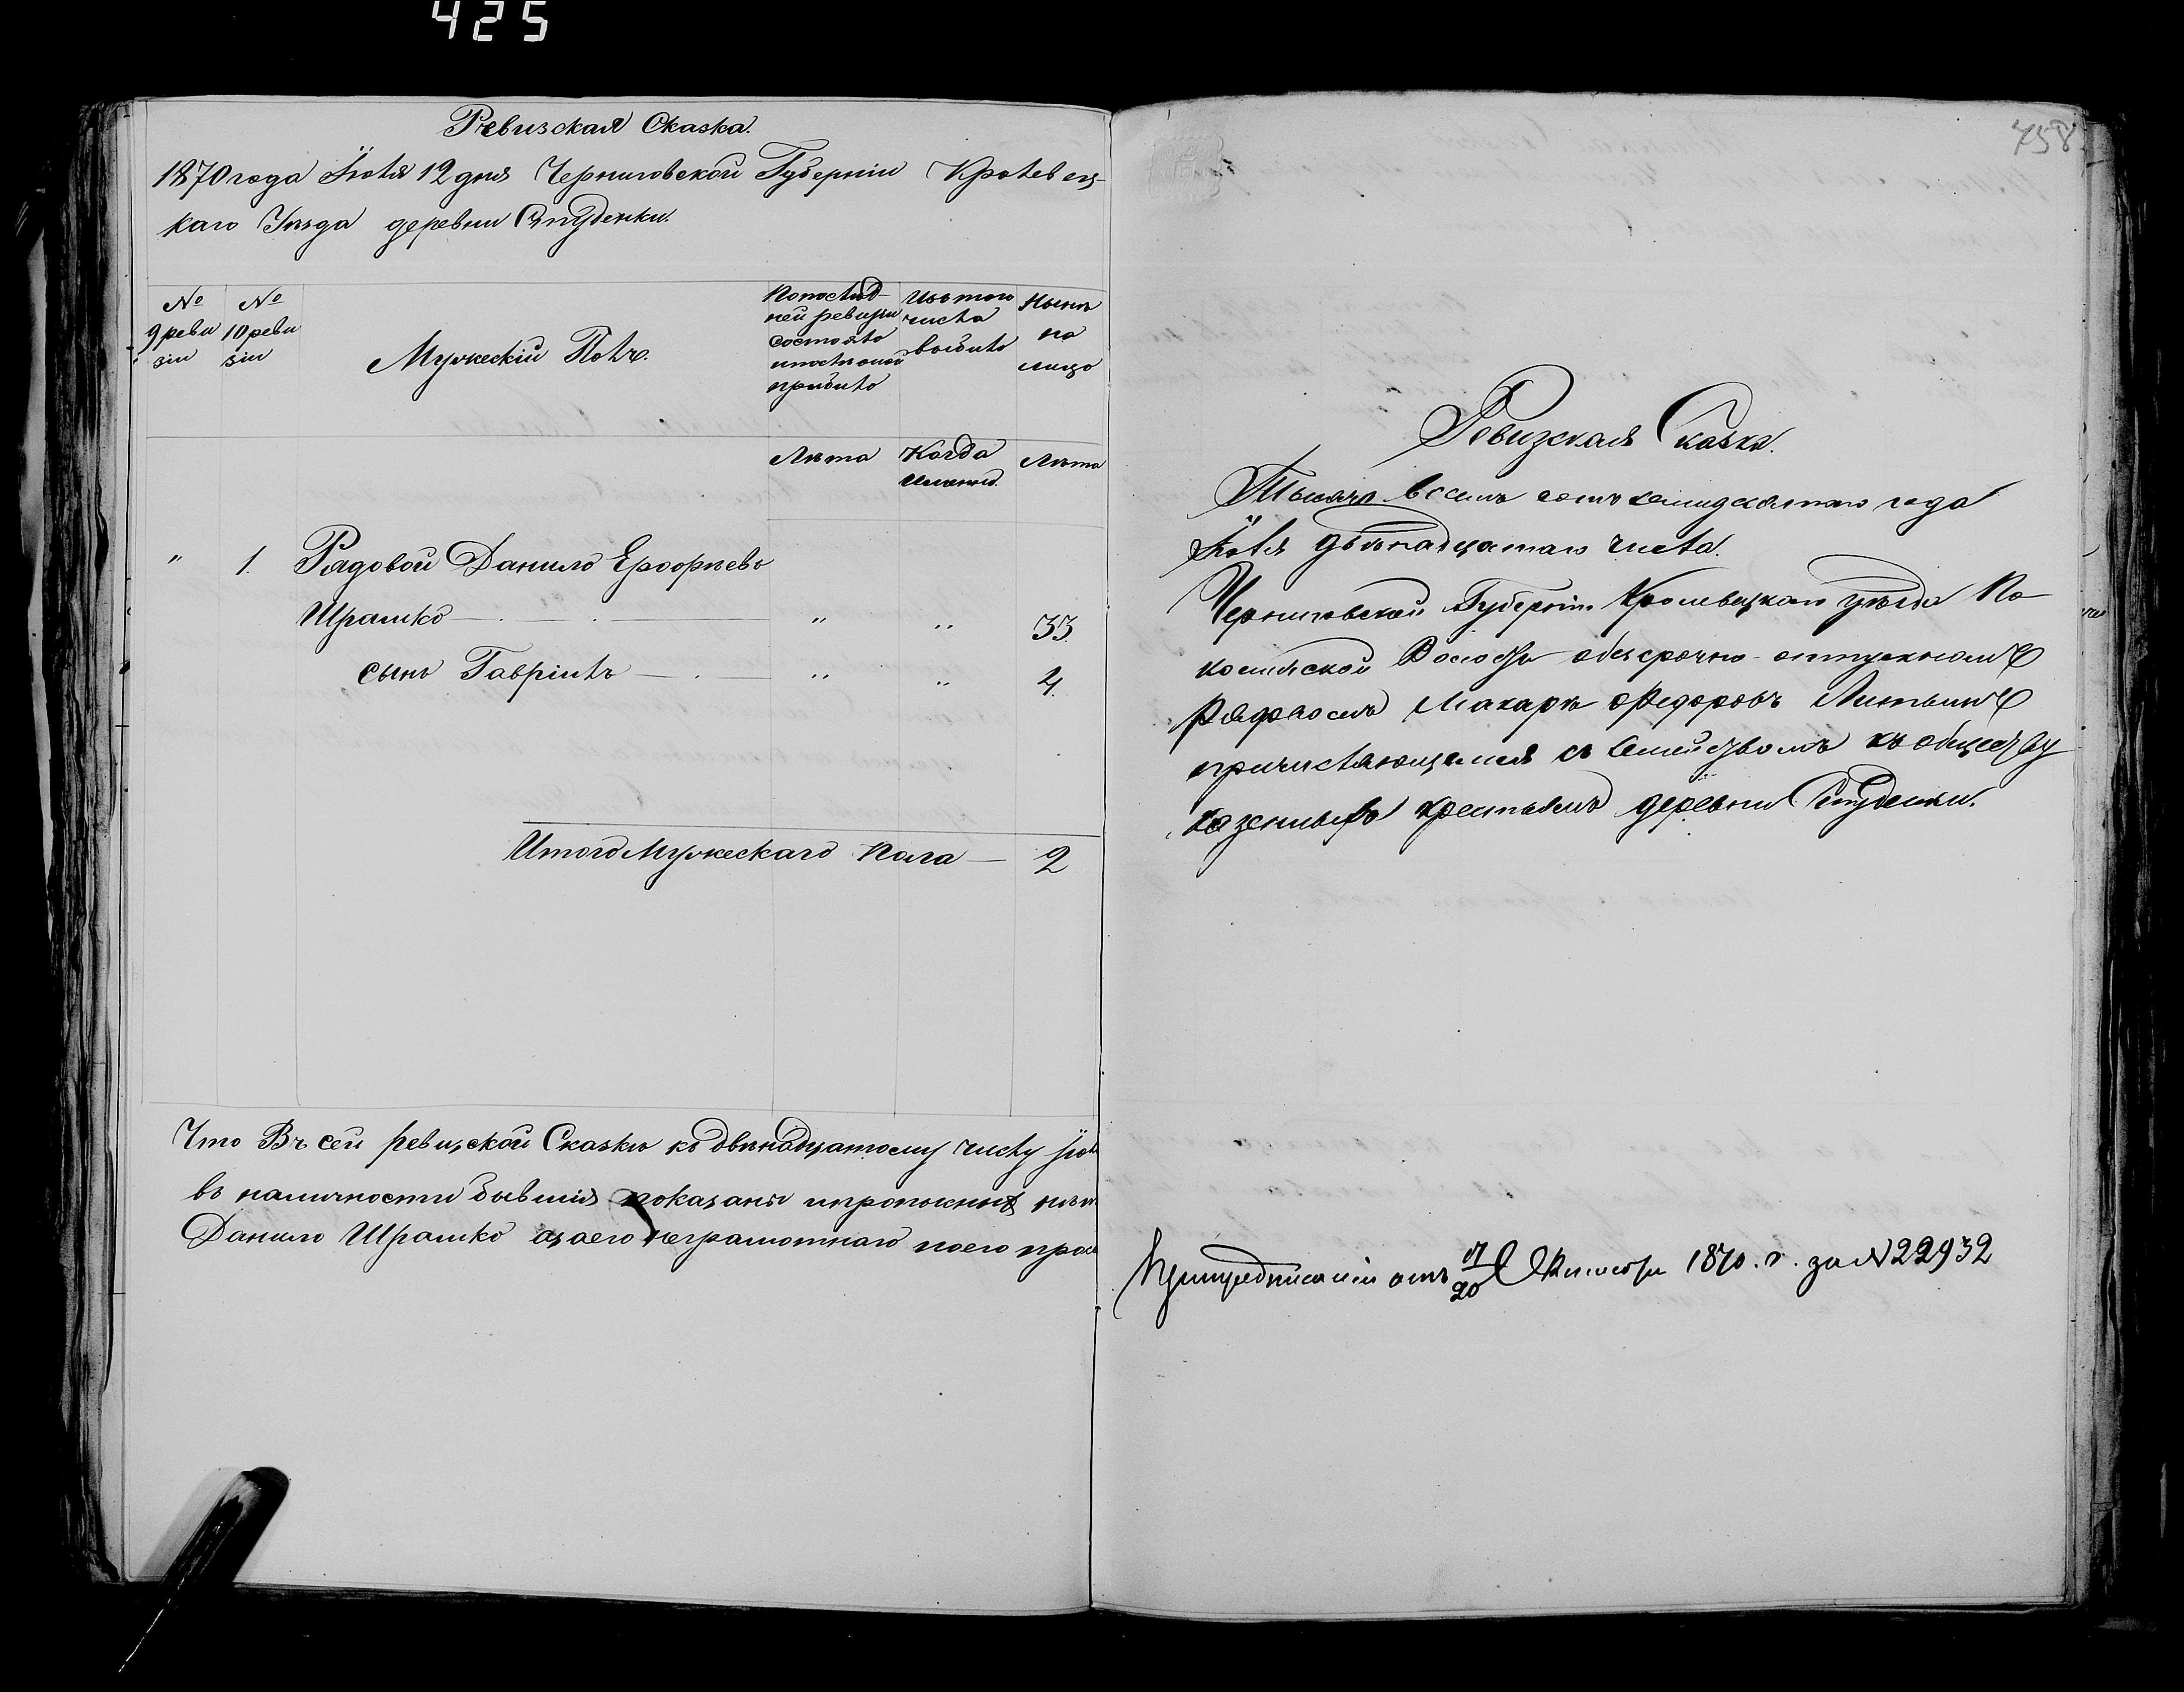 425
Ревизская Сказка.
1870 года Іюля 12 дня Черниговской Губерніи Кролевец-
каго Уѣзда деревни Студенки.
№ 9 реви зіи
№ 10 реви зіи
Мужескій Полъ.
По послѣд-
ней ревизіи
состояло
и послѣ оной
прибыло
Изъ того
числа
выбыло
Нынѣ
на
лицо
Лѣта
Когда
именно.
Лѣта
" 1. Рядовой Данило Ерофѣевъ
Шрамко " " 33.
сынъ Гавріилъ " " 4.
Итого Мужескаго пола — 2
Что Въ сей ревизской Сказкѣ къ двѣнадцатому числу Іюл
въ наличности бывшія показаны и пропожных нѣт
Данило Шрамко а за его неграмотнаго по его прось
758.
Ревизская Сказка.
Тысяча восемь сотъ семидесятаго года
Іюля двѣнадцатаго числа.
Черниговской Губерніи Кролевецкаго уѣзда По
кошской Волости о безсрочно-отпускномъ
рядовомъ Макарѣ Федоровѣ Литвинѣ
причисляющемся съ Семействомъ къ обществу
казенныхъ крестьянъ деревни Студенки.
При предписаніи отъ 17/20 Октября 1870. г. за № 22932